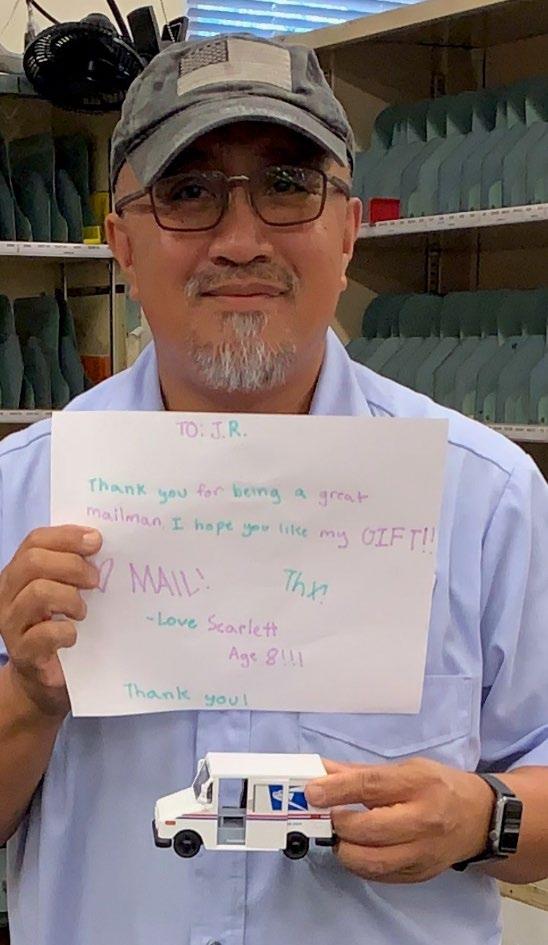 TO: J.R.
Thank you for being a great
mailman. I hope you like my GIFT!!
♡ MAIL! Thx!
-Love Scarlett
Age 8!!!
Thank you!